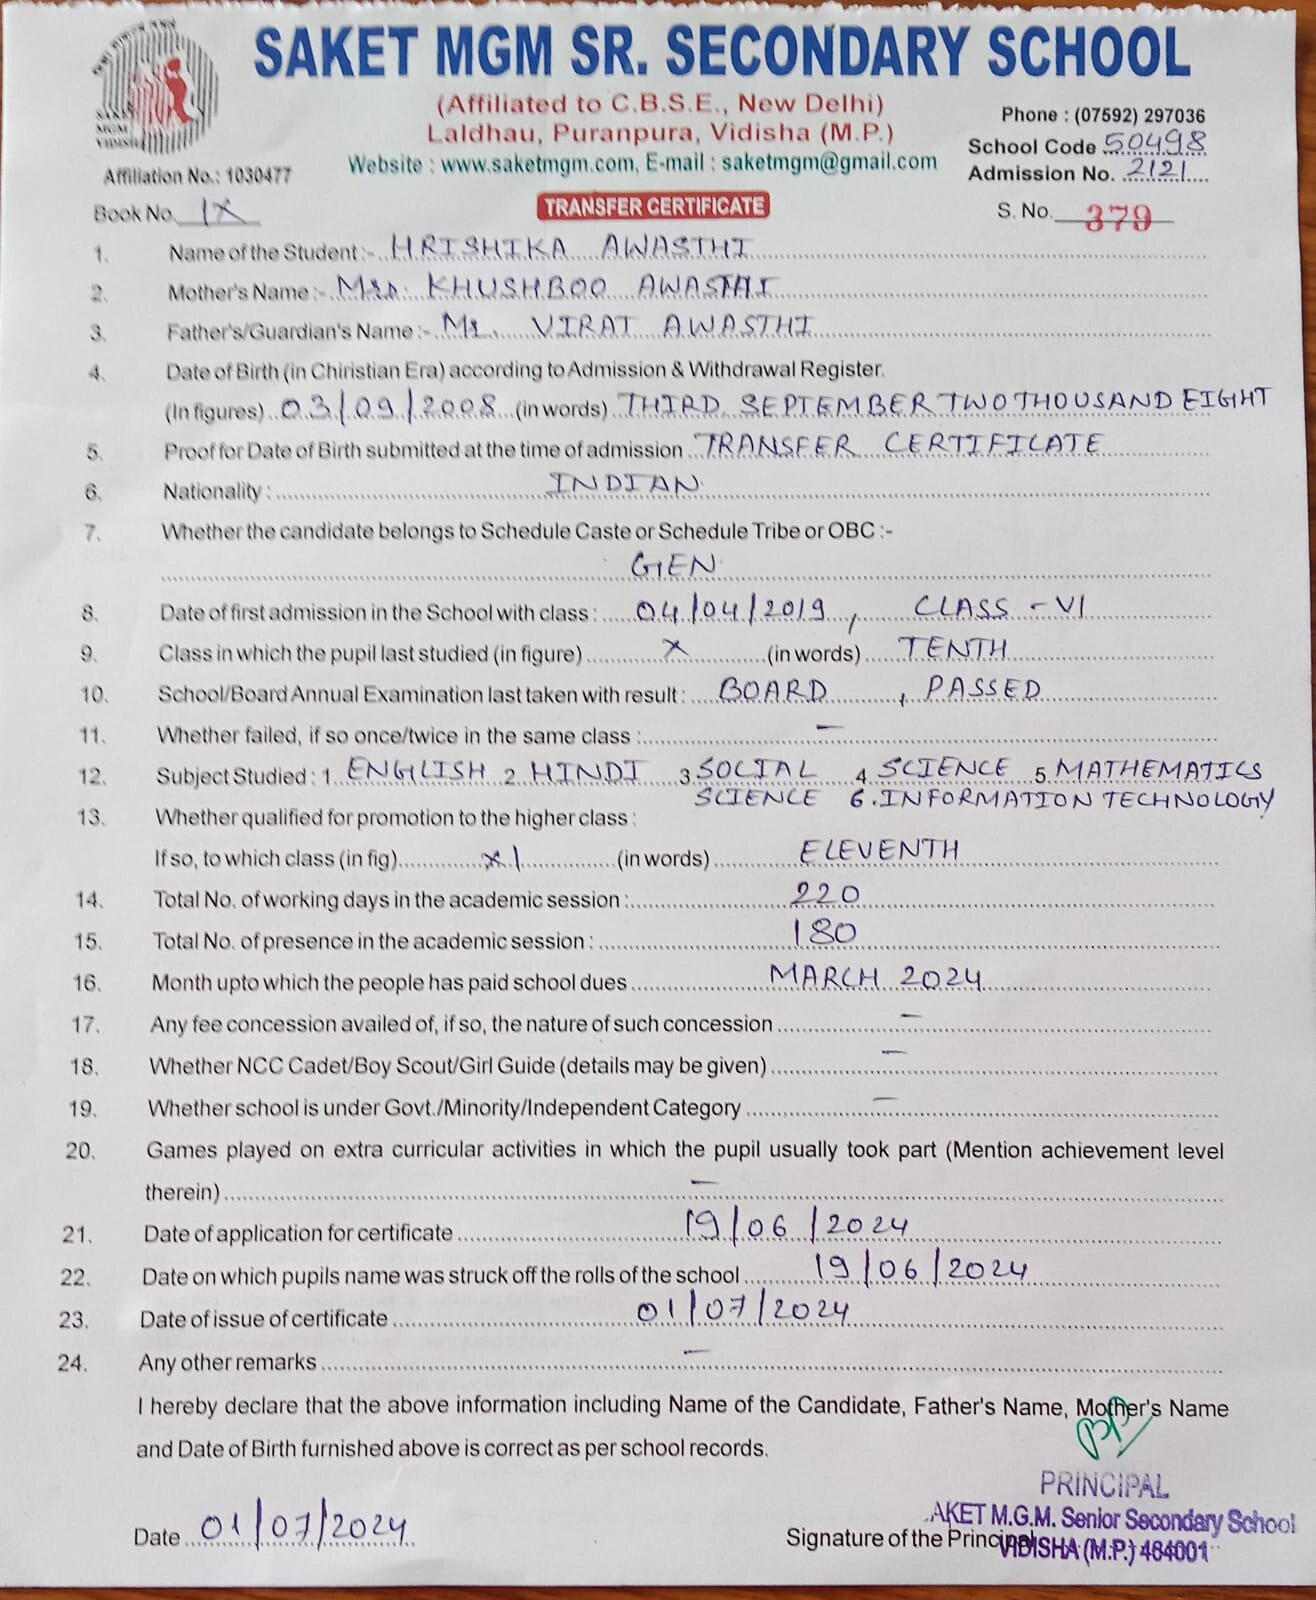 SAKET MGM SR. SECONDARY SCHOOL
(Affiliated to C.B.S.E., New Delhi)
Laldhau, Puranpura, Vidisha (M.P.)
Website : www.saketmgm.com, E-mail : saketmgm@gmail.com
SAKET
MGM
VIDISHA
Affiliation No.: 1030477
Phone : (07592) 297036
School Code 50498
Admission No. 2121
Book No. IX
TRANSFER CERTIFICATE
S. No. 379
1. Name of the Student :- HRISHIKA AWASTHI
2. Mother's Name :- Mrs. KHUSHBOO AWASTHI
3. Father's/Guardian's Name :- Mr. VIRAT AWASTHI
4. Date of Birth (in Chiristian Era) according to Admission & Withdrawal Register.
(In figures) 03/09/2008 (in words) THIRD SEPTEMBER TWO THOUSAND EIGHT
5. Proof for Date of Birth submitted at the time of admission TRANSFER CERTIFICATE
6. Nationality : INDIAN
7. Whether the candidate belongs to Schedule Caste or Schedule Tribe or OBC :-
GEN
8. Date of first admission in the School with class : 04/04/2019, CLASS - VI
9. Class in which the pupil last studied (in figure) X (in words) TENTH
10. School/Board Annual Examination last taken with result : BOARD , PASSED
11. Whether failed, if so once/twice in the same class : -
12. Subject Studied : 1. ENGLISH 2. HINDI 3. SOCIAL 4. SCIENCE 5. MATHEMATICS
SCIENCE 6. INFORMATION TECHNOLOGY
13. Whether qualified for promotion to the higher class :
If so, to which class (in fig) XI (in words) ELEVENTH
14. Total No. of working days in the academic session : 220
15. Total No. of presence in the academic session : 180
16. Month upto which the people has paid school dues MARCH 2024
17. Any fee concession availed of, if so, the nature of such concession -
18. Whether NCC Cadet/Boy Scout/Girl Guide (details may be given) -
19. Whether school is under Govt./Minority/Independent Category -
20. Games played on extra curricular activities in which the pupil usually took part (Mention achievement level
therein) -
21. Date of application for certificate 19/06/2024
22. Date on which pupils name was struck off the rolls of the school 19/06/2024
23. Date of issue of certificate 01/07/2024
24. Any other remarks -
I hereby declare that the above information including Name of the Candidate, Father's Name, Mother's Name
and Date of Birth furnished above is correct as per school records.
PRINCIPAL
AKET M.G.M. Senior Secondary School
VIDISHA (M.P.) 464001
Date 01/07/2024
Signature of the Principal